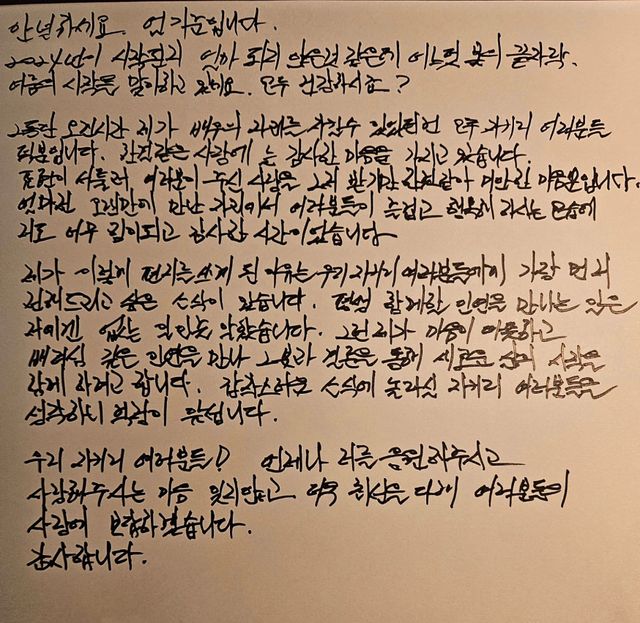 안녕하세요. 엄기준입니다.
2024년이 시작된지 얼마 되지 않은것 같은데 어느덧 봄의 끝자락.
여름의 시작을 맞이하고 있네요. 모두 건강하시죠?
그동안 오랜시간 제가 배우의 자리를 지킬수 있었던건 모두 자키리 여러분들
덕분입니다. 한결같은 사랑에 늘 감사한 마음을 가지고 있습니다.
표현이 서툴러 여러분이 주신 사랑을 그저 받기만 한것같아 미안한 마음뿐입니다.
얼마전 오랜만에 만난 자리에서 여러분들이 즐겁고 행복해 하시는 모습에
저도 너무 힐링되고 감사한 시간이었습니다
제가 이렇게 편지를 쓰게 된 이유는 우리 자키리 여러분들께 가장 먼저
전해드리고 싶은 소식이 있습니다. 평생 함께할 인연을 만나는 일은
저에겐 없는 일인줄 알았습니다. 그런 제가 마음이 따뜻하고
배려심 깊은 인연을 만나 그분과 결혼을 통해 새로운 삶의 시작을
함께 하려고 합니다. 갑작스러운 소식에 놀라실 자키리 여러분들을
생각하니 걱정이 앞섭니다.
우리 자키리 여러분들! 언제나 저를 응원해주시고
사랑해주시는 마음 잊지않고 더욱 최선을 다해 여러분들의
사랑에 보답하겠습니다.
감사합니다.